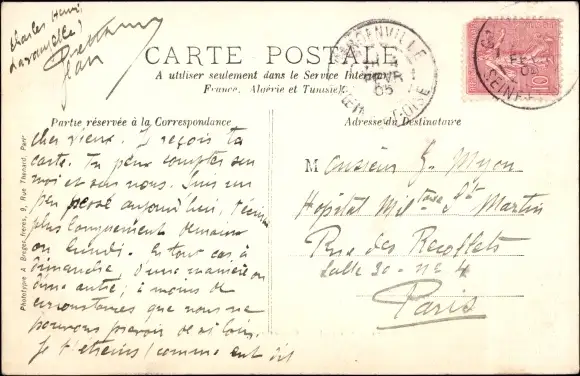 Charles Henri
CARTE POSTALE
A utiliser seulement dans le Service Intérieur
France, Algérie et Tunisie
GARGENVILLE
05
SEINE-ET-OISE
10
Partie réservée à la Correspondance
Adresse du Destinataire
Cher vieux. I reçois ta
carte. Tu peux compter sur
moi et sur nous. Suis un
peu pressé aujourd'hui, t'écrirai
plus longuement demain
ou lundi. En tout cas, à
Dimanche, d'une manière ou
d'une autre; à moins de
circonstances que nous ne
pouvons prévoir de si loin.
Je t'étreins (comme eut dit
Monsieur G. Myon
Hôpital Milre St Martin
Rue des Recollets
Salle 20 - No 4
Paris
Phototypie A. Breger frères, 9, Rue Thénard, Paris